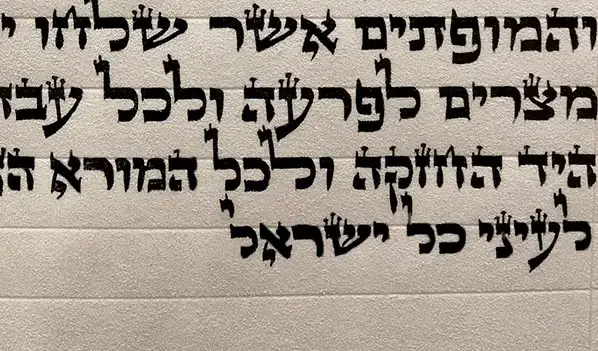 והמופתים אשר שלחו י
מצרים לפרעה ולכל עבד
היד החזקה ולכל המורא ה
לעיני כל ישראל